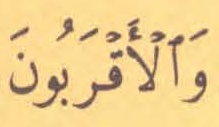 وَٱلْأَقْرَبُونَ